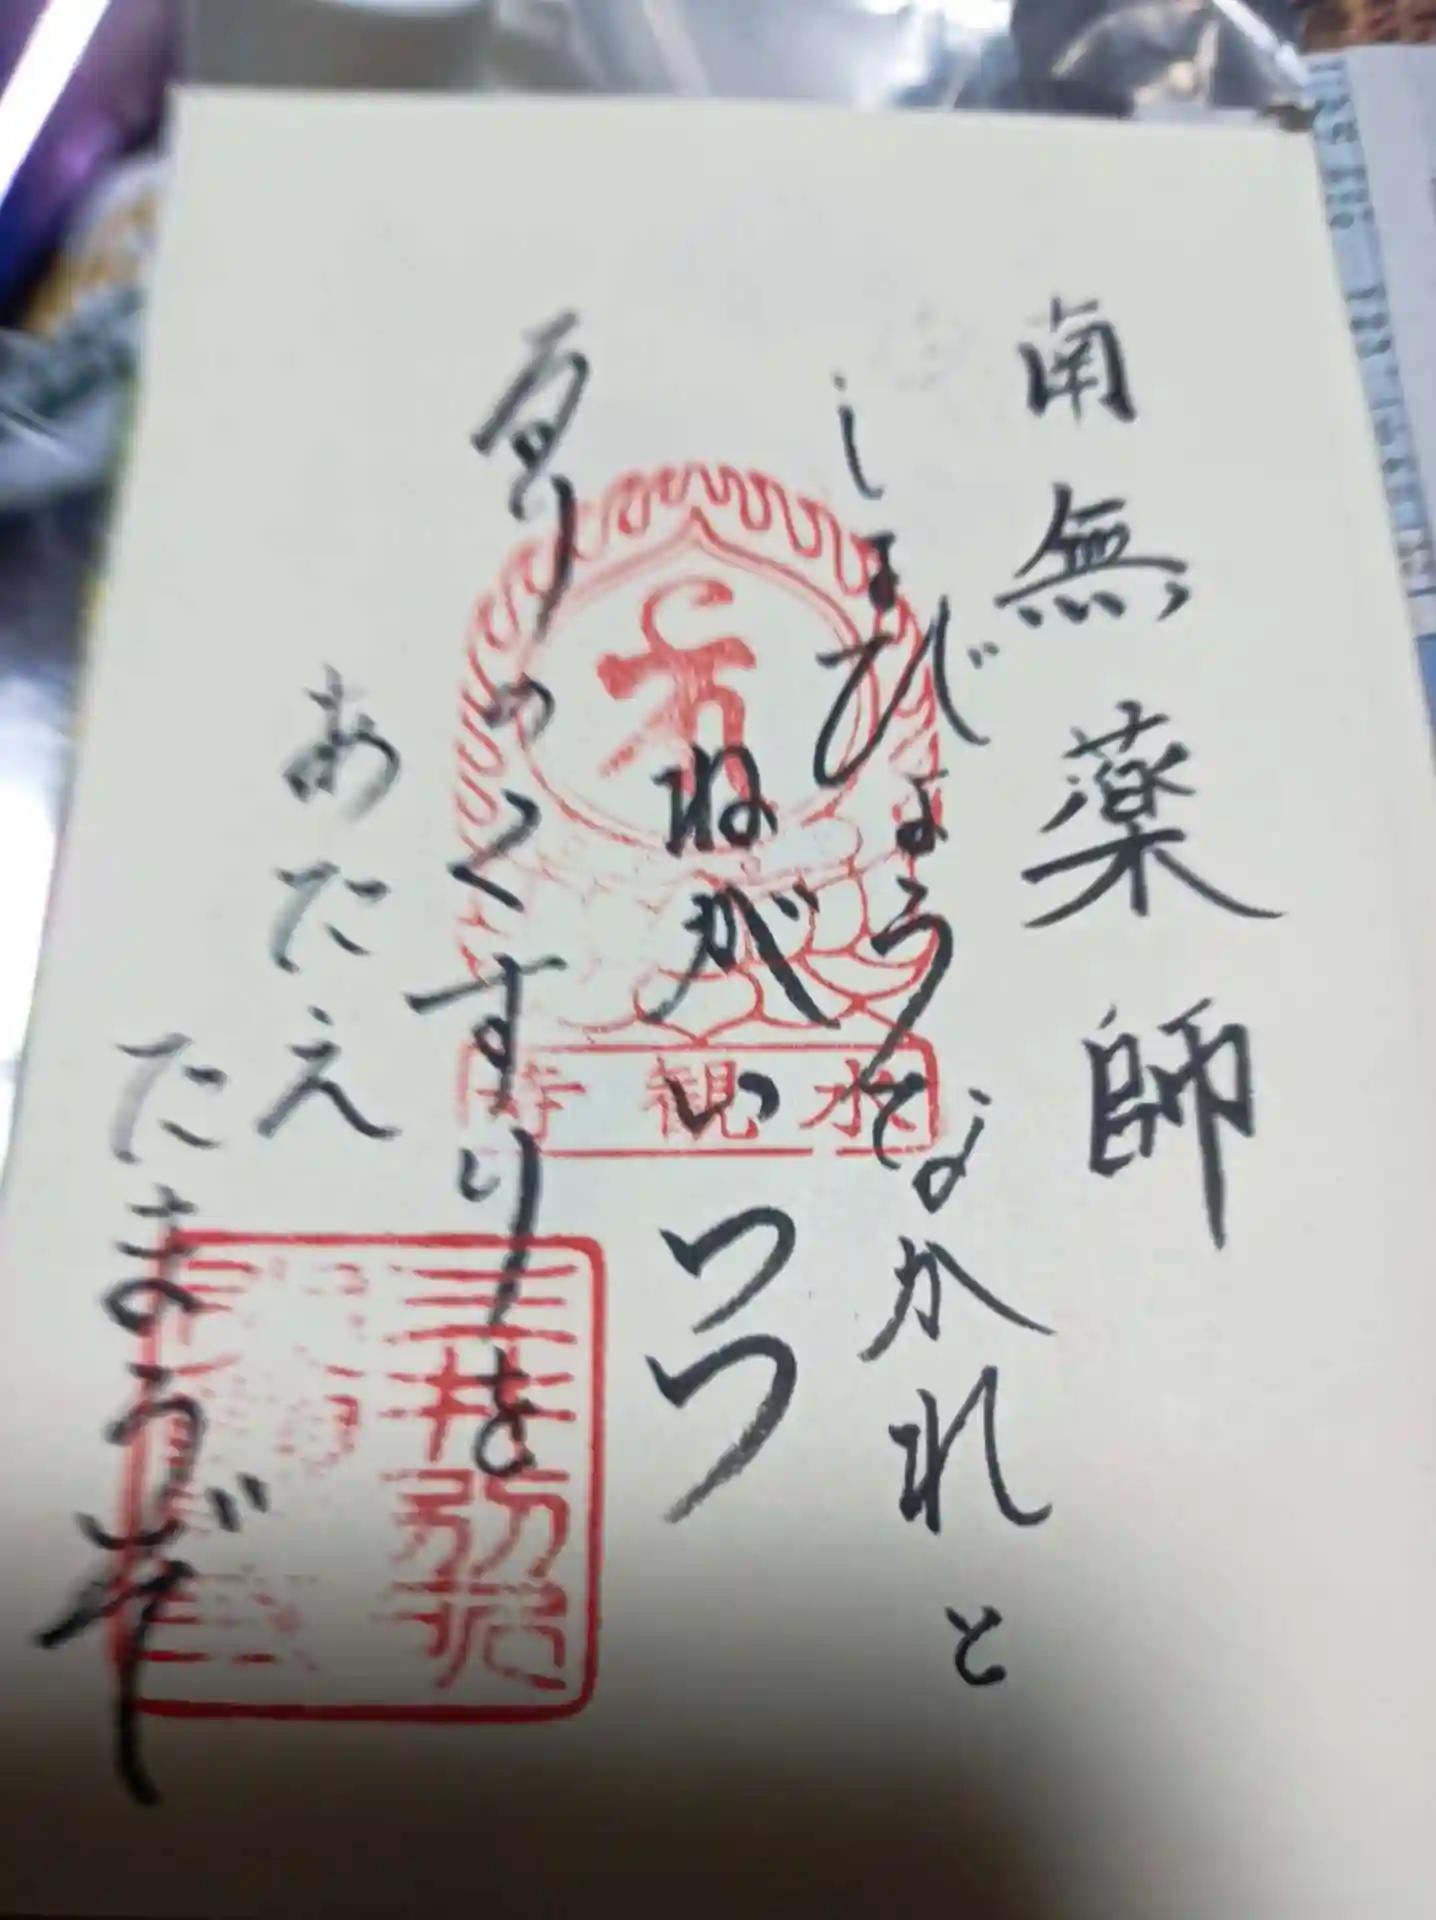 南無薬師
しよびようてなかれと
ねがいつつ
りのくすりを
あたえ
たまうぞ
水観寺
三井